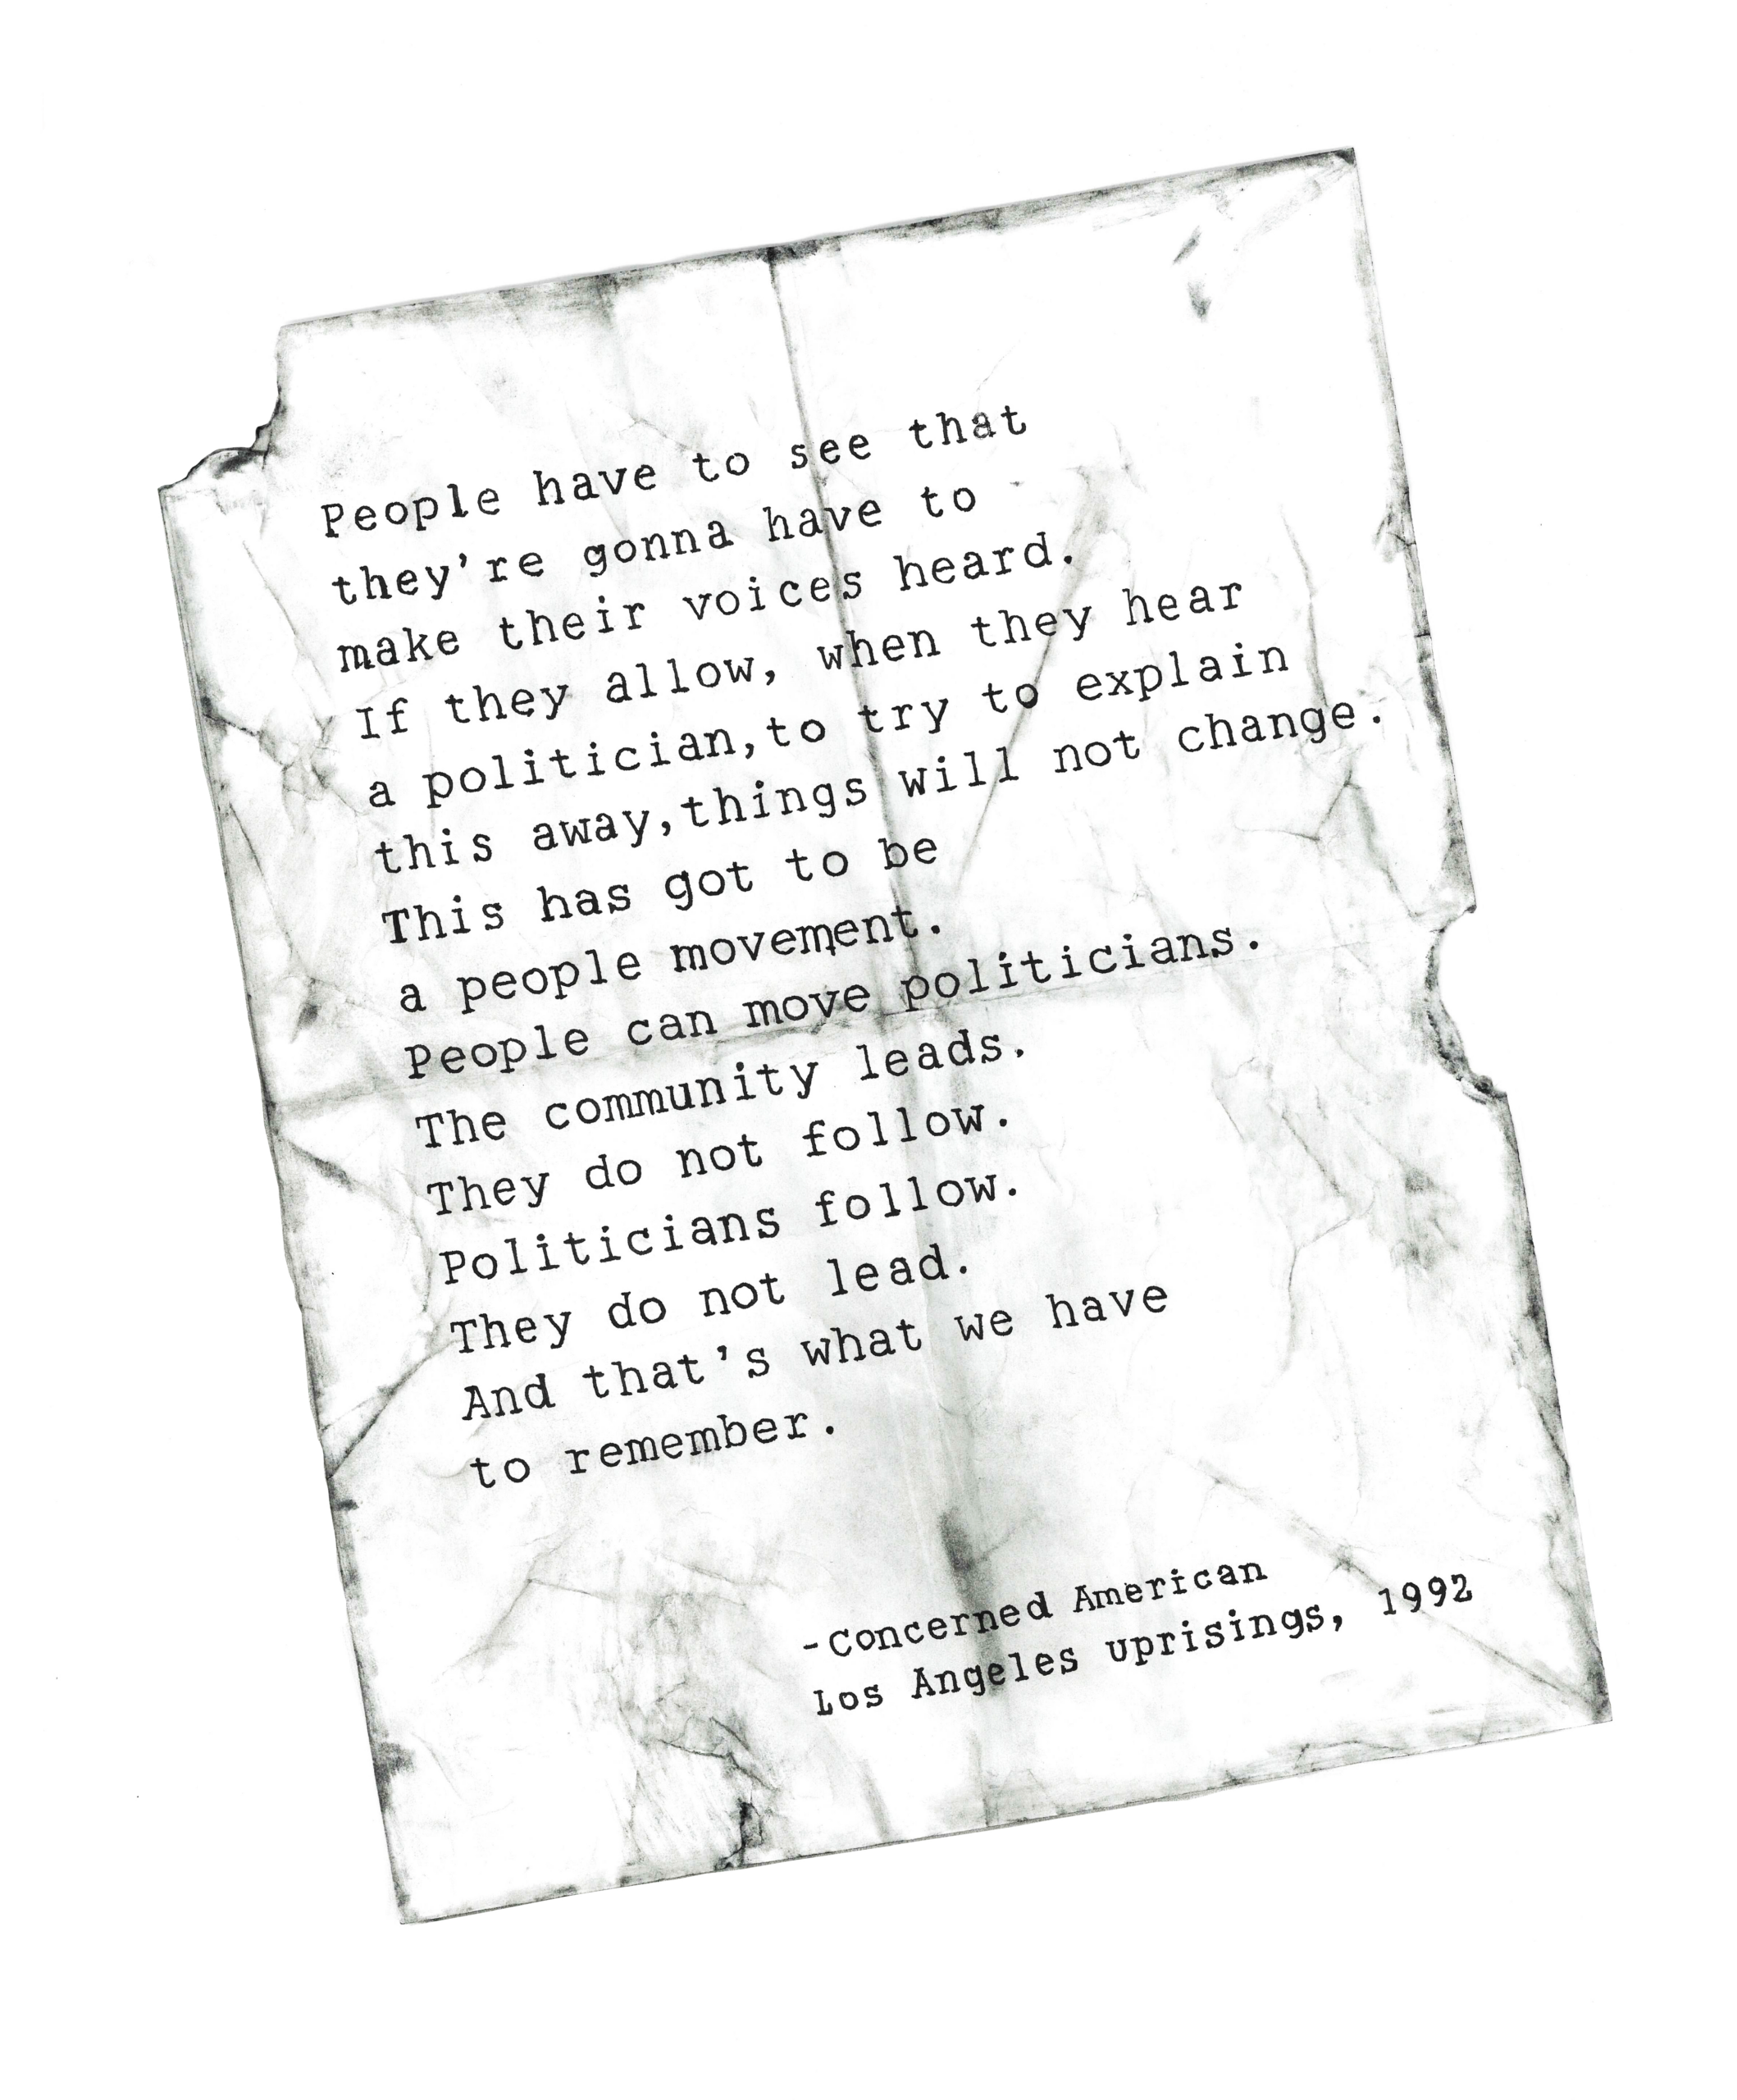 People have to see that
they're gonna have to
make their voices heard.
If they allow, when they hear
a politician,to try to explain
this away,things will not change.
This has got to be
a people movement.
People can move politicians.
The community leads.
They do not follow.
Politicians follow.
They do not lead.
And that's what we have
to remember.
-Concerned American
Los Angeles uprisings, 1992